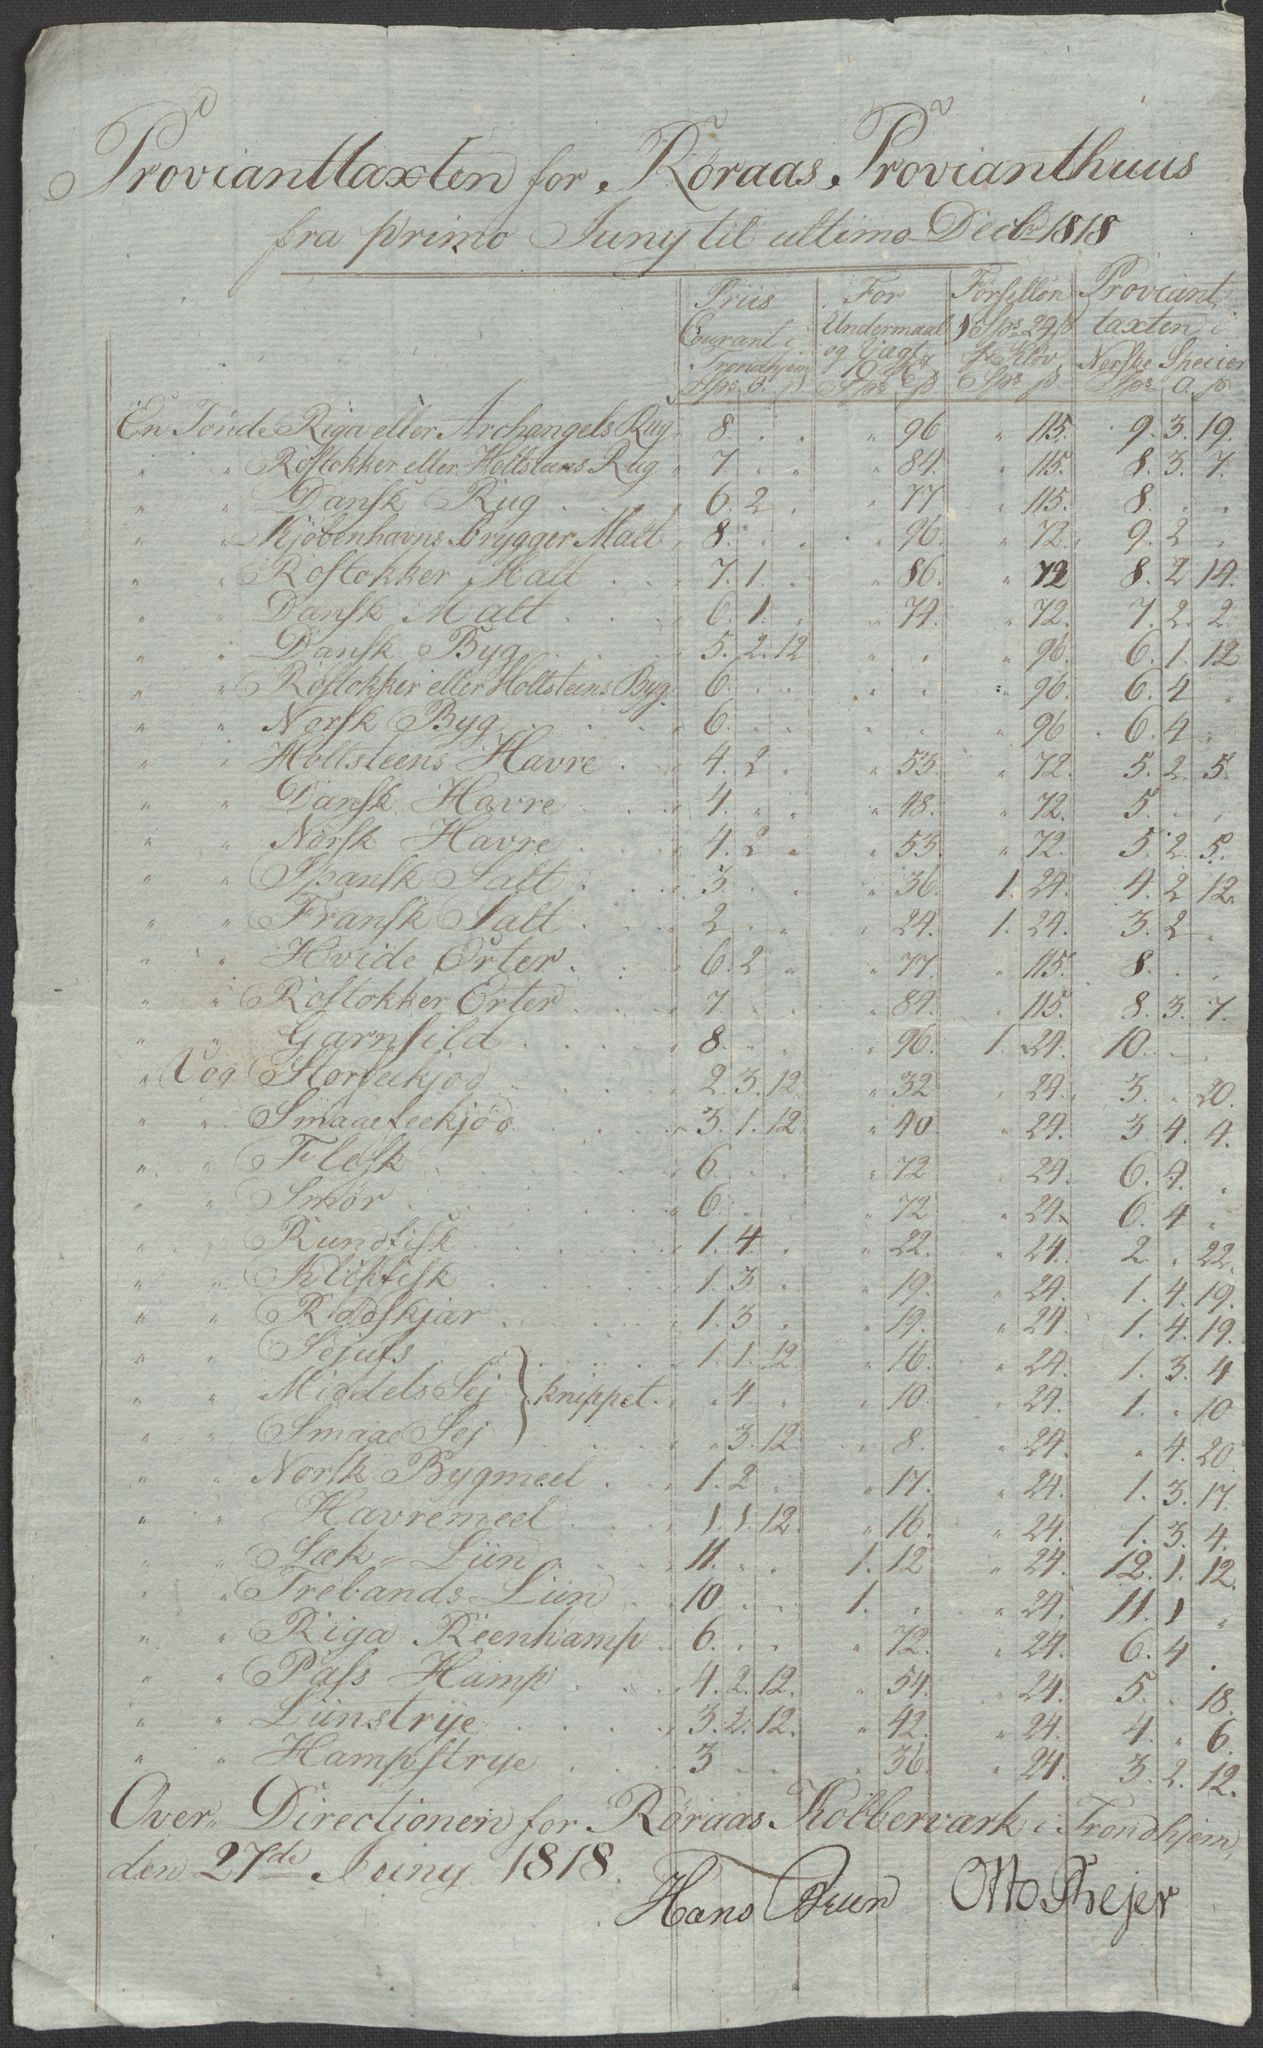 Provianttaxten for Röraas Provianthuus
fra primo Juny til ultimo Decbr 1818
Priis Courant i Trondhjem Sps. O. ß | For Undermaal og Vægt Sps ß | Forsellön 1 Sps 24 ß Sps ß | Proviant taxten i Norske Specier Sps O. ß
En Tönde Riga eller Archangels Rug 8. . . " 96 " 115. 9. 3. 19.
" " Rostokker eller Holtsteens Rug 7 . . " 84. " 115. 8. 3. 7.
" " Dansk Rug 6. 2 . " 77 " 115. 8. . .
" " Kjöbenhavns brygger Malt 8. . . " 96. " 72. 9. 2 .
" " Rostokker Malt 7. 1. . " 86. " 72 8. 2 14.
" " Dansk Malt 6. 1. . " 74. " 72. 7. 2. 2.
" " Dansk Byg 5. 2. 12 " . " 96. 6. 1. 12
" " Rostokker eller Holtsteens Byg. 6. . . . . " 96. 6. 4 .
" " Norsk Byg 6. . . " . " 96 6. 4 .
" " Holtsteens Havre 4. 2 . " 53. " 72. 5. 2. 5.
" " Dansk Havre 4. . . " 48. " 72. 5. . .
" " Norsk Havre 4. 2 . " 53. " 72. 5. 2. 5.
" " Spansk Salt 3 . . " 36. 1. 24. 4. 2 12.
" " Fransk Salt 2 . . " 24. 1. 24. 3. 2 .
" " Hvide Erter 6. 2 . " 77. " 115. 8. . .
" " Rostokker Erter 7 . . " 84. " 115. 8. 3. 7.
" " Garnsild 8. . . " 96. 1. 24. 10. . .
" Vog Storfeekjöd 2. 3. 12. " 32 " 24. 3. . 20.
" " Smaaefeekjöd 3. 1. 12. " 40 " 24. 3 4. 4.
" " Flesk 6. . . " 72 24. 6. 4. .
" " Smör 6. . . " 72 " 24. 6. 4 .
" " Rundfisk 1. 4 . " 22. " 24. 2. . 22.
" " Klipfisk 1. 3 . " 19. " 24. 1. 4. 19.
" " Rodskjær 1. 3 . " 19. " 24 1. 4. 19
" " Sejufs 1. 1. 12. " 16. " 24. 1. 3. 4
" " Middels Sej } knippet. " 4 . " 10. " 24. 1. . 10
" " Smaae Sej " 3. 12. " 8. " 24. " 4. 20.
" " Norsk Bygmeel 1. 2 . " 17. " 24. 1. 3. 17.
" " Havremeel 1. 1. 12. " 16. " 24. 1. 3. 4.
" " Sæk Liin 11. . . 1. 12 " 24 12. 1. 12.
" " Trebands Liin 10 . . 1. . " 24. 11. 1 "
" " Riga Reenhamp 6. . . " 72. " 24. 6. 4 .
" " Pass Hamp 4. 2. 12. " 54. " 24. 5. . 18.
" " Liinstrye 3. 2. 12. " 42. " 24. 4. " 6.
" " Hampstrye 3 . . 36. " 24. 3. 2. 12.
Over Directionen for Röraas Kobberværk i Trondhjem,
den 27de Juny 1818.
Hans Otto